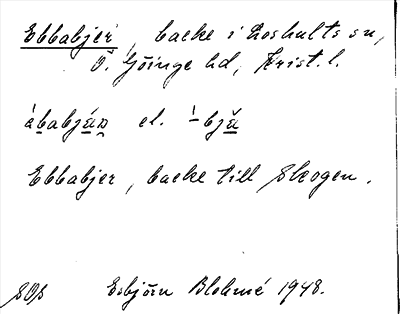 Ebbabjer, backe i Loshults sn,
Ö. Göinge hd, Krist. l.
el.
Ebbabjer, backe till Skogen.
SOB Esbjörn Blohmé 1948.